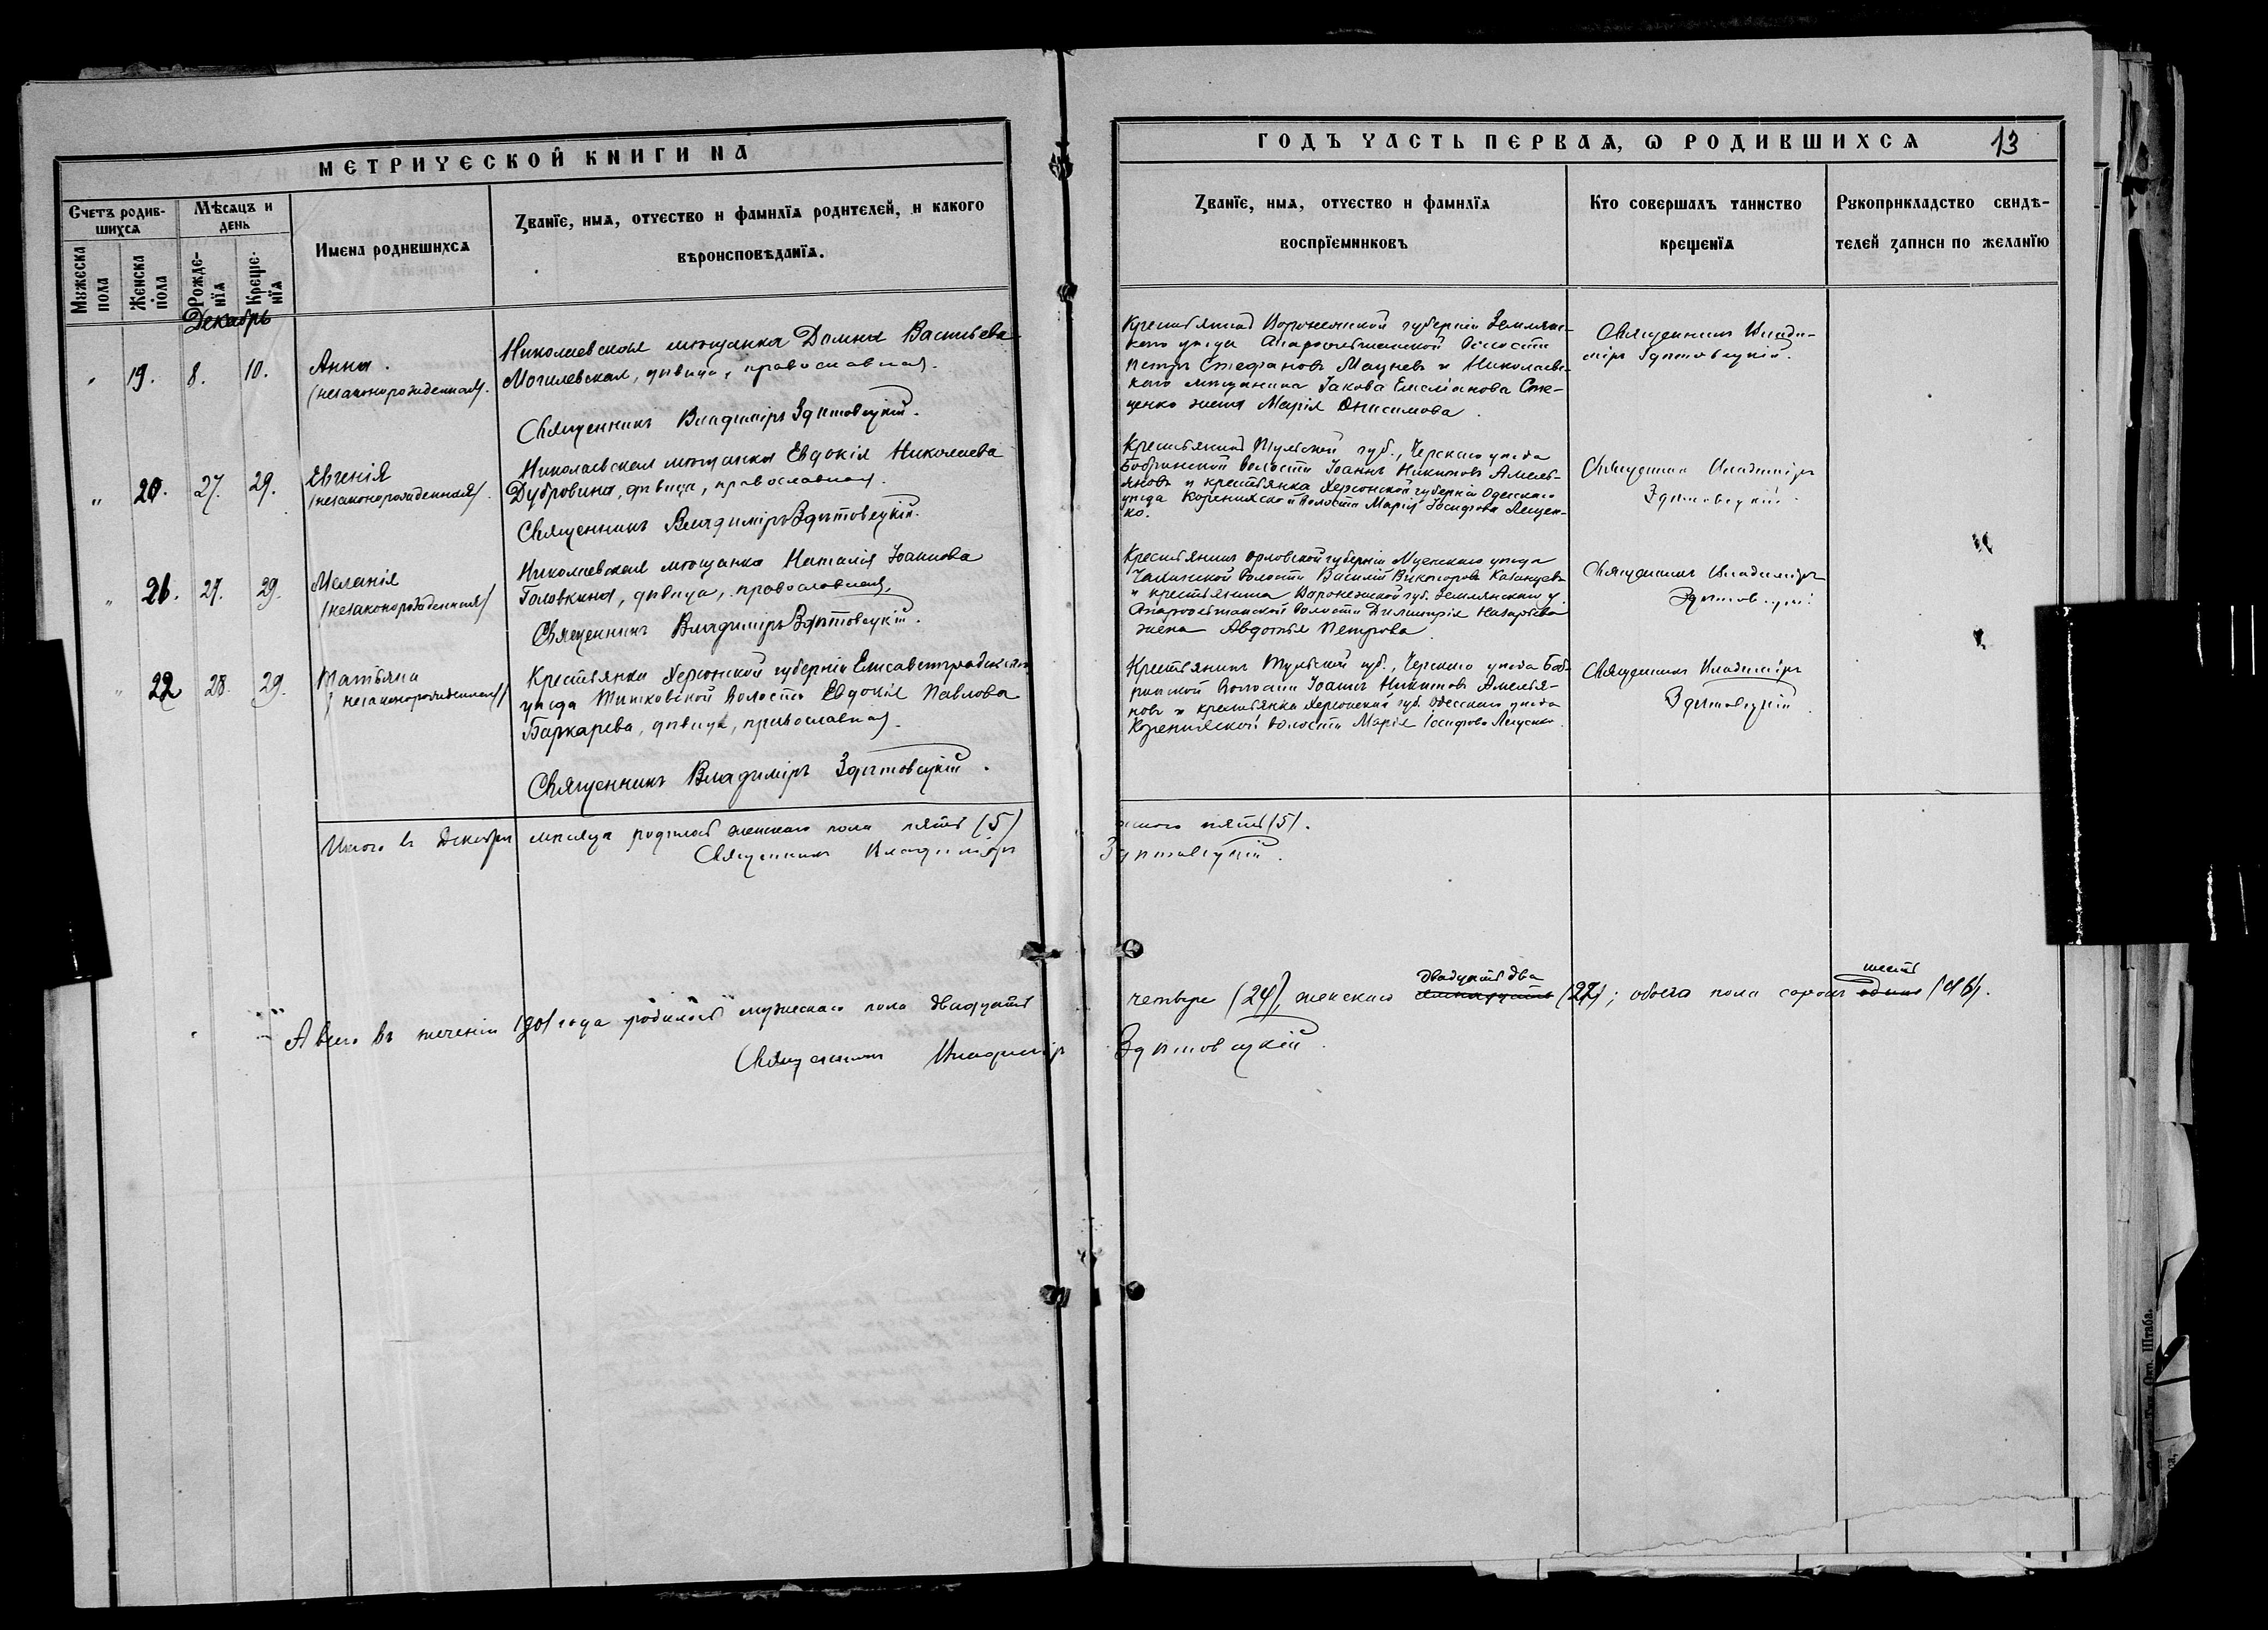 МЕТРИЧЕСКОЙ КНИГИ НА
ГОДЪ ЧАСТЬ ПЕРВАѦ, Ѡ РОДИВШИХСѦ
13
Счетъ родив-
шихсѧ
Мѣсѧцъ и
день
Мꙋжеска
пола
Женска
пола
Рожде-
нїѧ
Креще-
нїѧ
Имена родившихсѧ
Званїе, имѧ, отчество и фамилїѧ родителей, и какого
вѣроисповѣданїѧ.
Званїе, имѧ, отчество и фамилїѧ
воспрїемниковъ
Кто совершалъ таинство
крещенїѧ
Рꙋкоприкладство свидѣ-
телей записи по желанїю
Декабрь
" 19. 8. 10.
Анна.
(незаконорожденная).
Николаевская мѣщанка Домна Васильева
Могилевская, дѣвица, православная.
Священникъ Владиміръ Здѣтовецкій.
Крестьянинъ Воронежской губерніи Землян-
скаго уѣзда волости
Петръ Стефановъ Мацневъ и Николаевс-
каго мѣщанина Іакова Емеліанова Сте-
ценко жена Марія Онисимова.
Священникъ Влади-
міръ Здѣтовецкій.
" 20. 27. 29.
Евгенія
(незаконорожденная).
Николаевская мѣщанка Евдокія Николаева
Дубровина, дѣвица, православная.
Священникъ Владиміръ Здѣтовецкій.
Крестьянинъ Тульской губ., Чернскаго уѣзда
Бобринской волости Іоаннъ Никитовъ Амель-
яновъ и крестьянка Херсонской губерніи Одесскаго
уѣзда волости Марія Іосифова Лещен-
ко.
Священникъ Владиміръ
Здѣтовецкій.
" 21. 27. 29.
Меланія
(незаконорожденная)
Николаевская мѣщанка Наталія Іоаннова
Головкина, дѣвица, православная.
Священникъ Владиміръ Здѣтовецкій.
Крестьянинъ Орловской губерніи Мценскаго уѣзда
волости Василій Викторовъ Казанцевъ
и крестьянина Воронежской губ. Землянскаго у.
волости Димитрія Назарьева
жена Авдотья Петрова.
Священникъ Владиміръ
Здѣтовецкій.
" 22 28. 29.
Татьяна
(незаконорожденная)
Крестьянка Херсонской губерніи Елисаветградскаго
уѣзда Тишковской волости Евдокія Павлова
Баркарева, дѣвица, православная.
Священникъ Владиміръ Здѣтовецкій.
Крестьянинъ Тульской губ., Чернскаго уѣзда Боб-
ринской волости Іоаннъ Никитовъ Амелья-
новъ и крестьянка Херсонской губ. Одесскаго уѣзда
волости Марія Іосифова Лещенко.
Священникъ Владиміръ
Здѣтовецкій.
Итого въ Декабрѣ мѣсяцѣ родилось женскаго пола пять (5)
пять (5).
Священникъ Владиміръ Здѣтовецкій.
двадцать два
шесть
А всего въ теченіи 1901 года родилось мужескаго пола двадцать четыре (24), женскаго (22); обоего пола сорокъ одинъ (46).
Священникъ Владиміръ Здѣтовецкій.
Окр. Штаба.